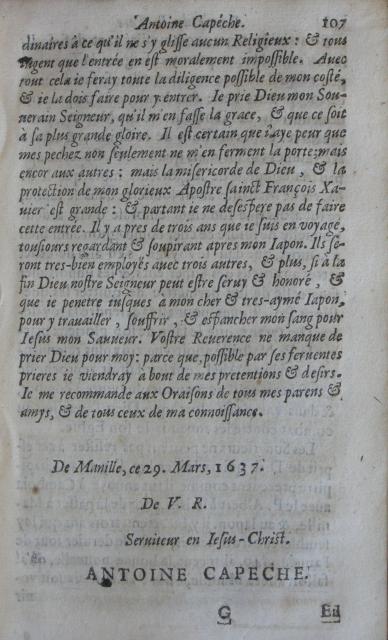 Antoine Capeche. 107
dinaires à ce qu'il ne s'y glisse aucun Religieux : & tous
iugent que l'entrée en est moralement impossible. Auec
tout cela ie feray toute la diligence possible de mon costé,
& ie la dois faire pour y entrer. Ie prie Dieu mon Sou-
uerain Seigneur, qu'il m'en fasse la grace, & que ce soit
à sa plus grande gloire. Il est certain que i'aye peur que
mes pechez non seulement ne m'en ferment la porte; mais
encor aux autres : mais la misericorde de Dieu, & la
protection de mon glorieux Apostre sainct François Xa-
uier est grande : & partant ie ne desespere pas de faire
cette entrée. Il y a pres de trois ans que ie suis en voyage,
tousiours regardant & soupirant apres mon Iapon. Ils se-
ront tres-bien employés auec trois autres, & plus, si à la
fin Dieu nostre Seigneur peut estre seruy & honoré, &
que ie penetre iusques à mon cher & tres-aymé Iapon,
pour y trauailler, souffrir, & espancher mon sang pour
Iesus mon Sauueur. Vostre Reuerence ne manque de
prier Dieu pour moy : parce que, possible par ses feruentes
prieres ie viendray à bout de mes pretentions & desirs.
Ie me recommande aux Oraisons de tous mes parens &
amys, & de tous ceux de ma connoissance.
De Manille, ce 29. Mars, 1637.
De V. R.
Seruiteur en Iesus-Christ.
ANTOINE CAPECHE.
G Ed